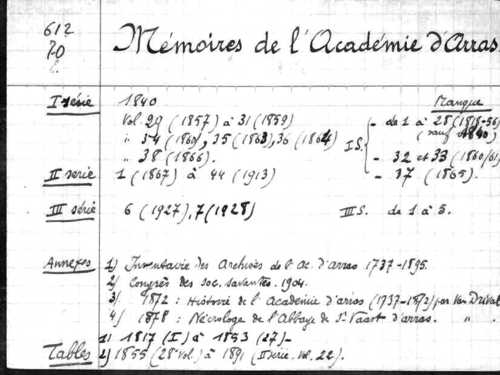 612
Mémoires de l'Académie d'Arras
I série 1840 Manque
Vol 29 (1857) à 31 (1859) I S. - de 1 à 28 (1818-56)
" 34 (1861), 35 (1863), 36 (1864) (sauf 1840)
" 38 (1866). - 32 et 33 (1860/61)
II serie 1 (1867) à 44 (1913) - 37 (1865).
III série 6 (1927), 7 (1928) III S. de 1 à 5.
Annexes 1) Inventaire des Archives de l'Ac. d'arras 1737-1895.
2) Congrès des soc. savantes. 1904.
3) 1872 : Histoire de l'Académie d'arras (1737-1872) par Van Drival
4) 1878 : Nécrologe de l'Abbaye de St Vaast d'arras. " "
1) 1817 (I) à 1853 (27)-
Tables 2) 1855 (28e Vol.) à 1891 (II serie. Vol. 22).